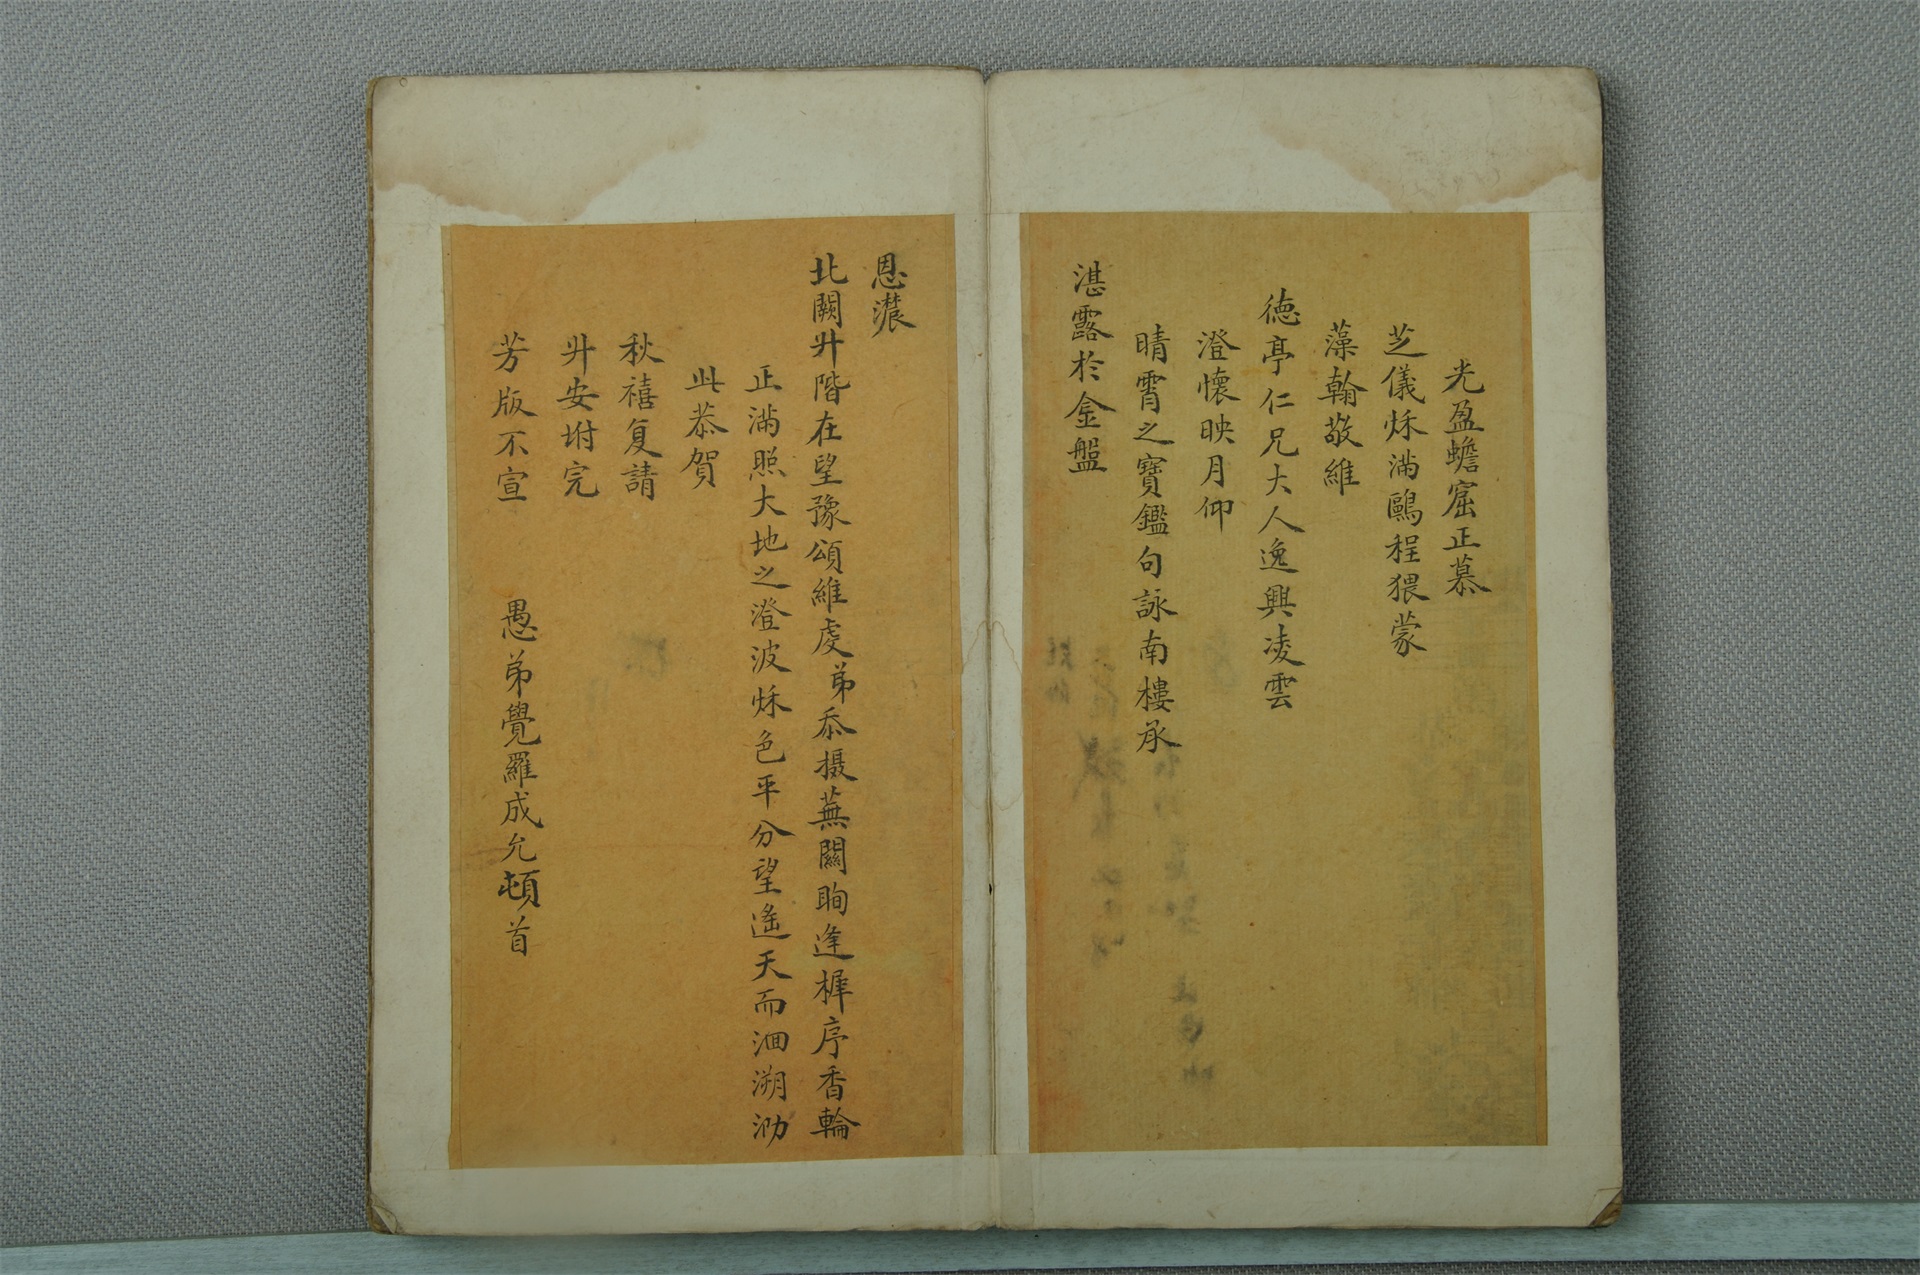 光盈蟾窟正慕
芝儀秌滿鷗程猥蒙
藻翰敬維
德亭仁兄大人逸興凌雲
澄懷映月仰
晴霄之寶鑑句詠南樓承
湛露於金盤
恩濃
北闕升階在望豫頌維虔弟忝摄蕪關眴逢樨序香輪
正滿照大地之澄波秌色平分望遙天而洄溯泐
此恭賀
秋禧复請
升安坿完
芳版不宣 愚弟覺羅成允頓首